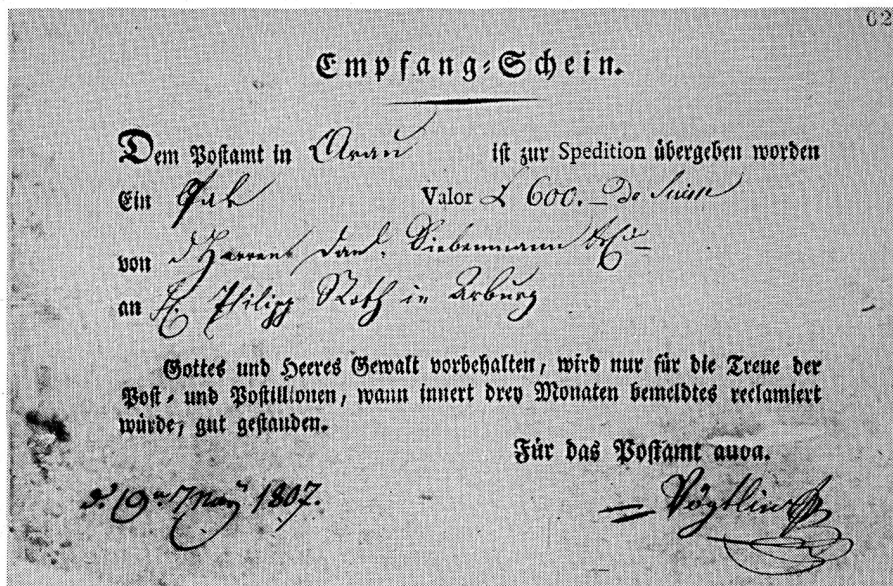 02
Empfang-Schein.
Dem Postamt in Arau ist zur Spedition übergeben worden
Ein Pak Valor L 600.- De Suisse
von d Herren Danl. Siebenmann & Co
an H. Philipp Roth in Arburg
Gottes und Heeres Gewalt vorbehalten, wird nur für die Treue der
Post- und Postillionen, wann innert drey Monaten bemeldtes reclamiert
würde, gut gestanden.
Für das Postamt allda.
d. 19n May 1807.
Vögtlin